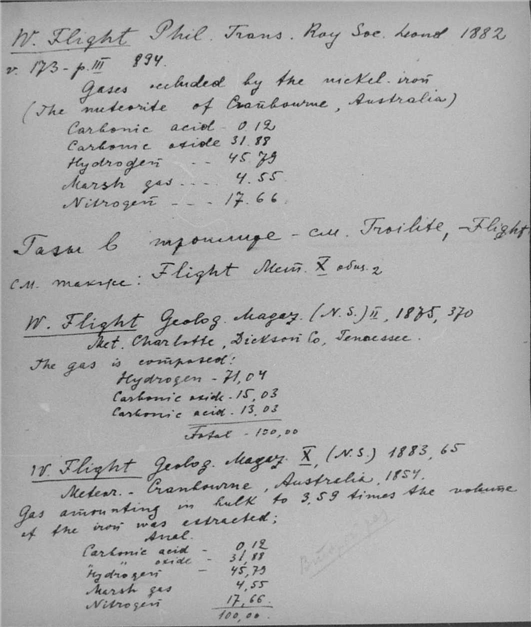 W. Flight Phil. Trans. Roy Soc. Lond 1882
v. 173 - p. III 894.
Gases occluded by the nickel-iron
(The meteorite of Cranbourne, Australia)
Carbonic acid - 0.12
Carbonic oxide 31.88
Hydrogen - - 45.79
Marsh gas - - - 4.55
Nitrogen - - - 17.66
Газы в троилите - см. Troilite, - Flight
см. также: Flight Mem. X
W. Flight Geolog. Magaz. (N.S.) II, 1875, 370
Met. Charlotte, Dickson Co, Tennessee.
The gas is composed:
Hydrogen - 71,04
Carbonic oxide - 15,03
Carbonic acid - 13.03
Total - 100,00
W. Flight Geolog. Magaz. X, (N.S.) 1883, 65
Meteor. - Cranbourne, Australia, 1854.
Gas amounting in bulk to 3.59 times the volume
of the iron was extracted;
Anal.
Carbonic acid - 0,12
" oxide - 31,88
Hydrogen - 45,79
Marsh gas 4,55
Nitrogen 17,66.
100,00.